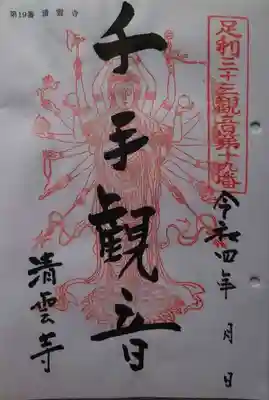 第19番 清雲寺
足利三十三観音第十九番
令和四年 月 日
千手観音
清雲寺